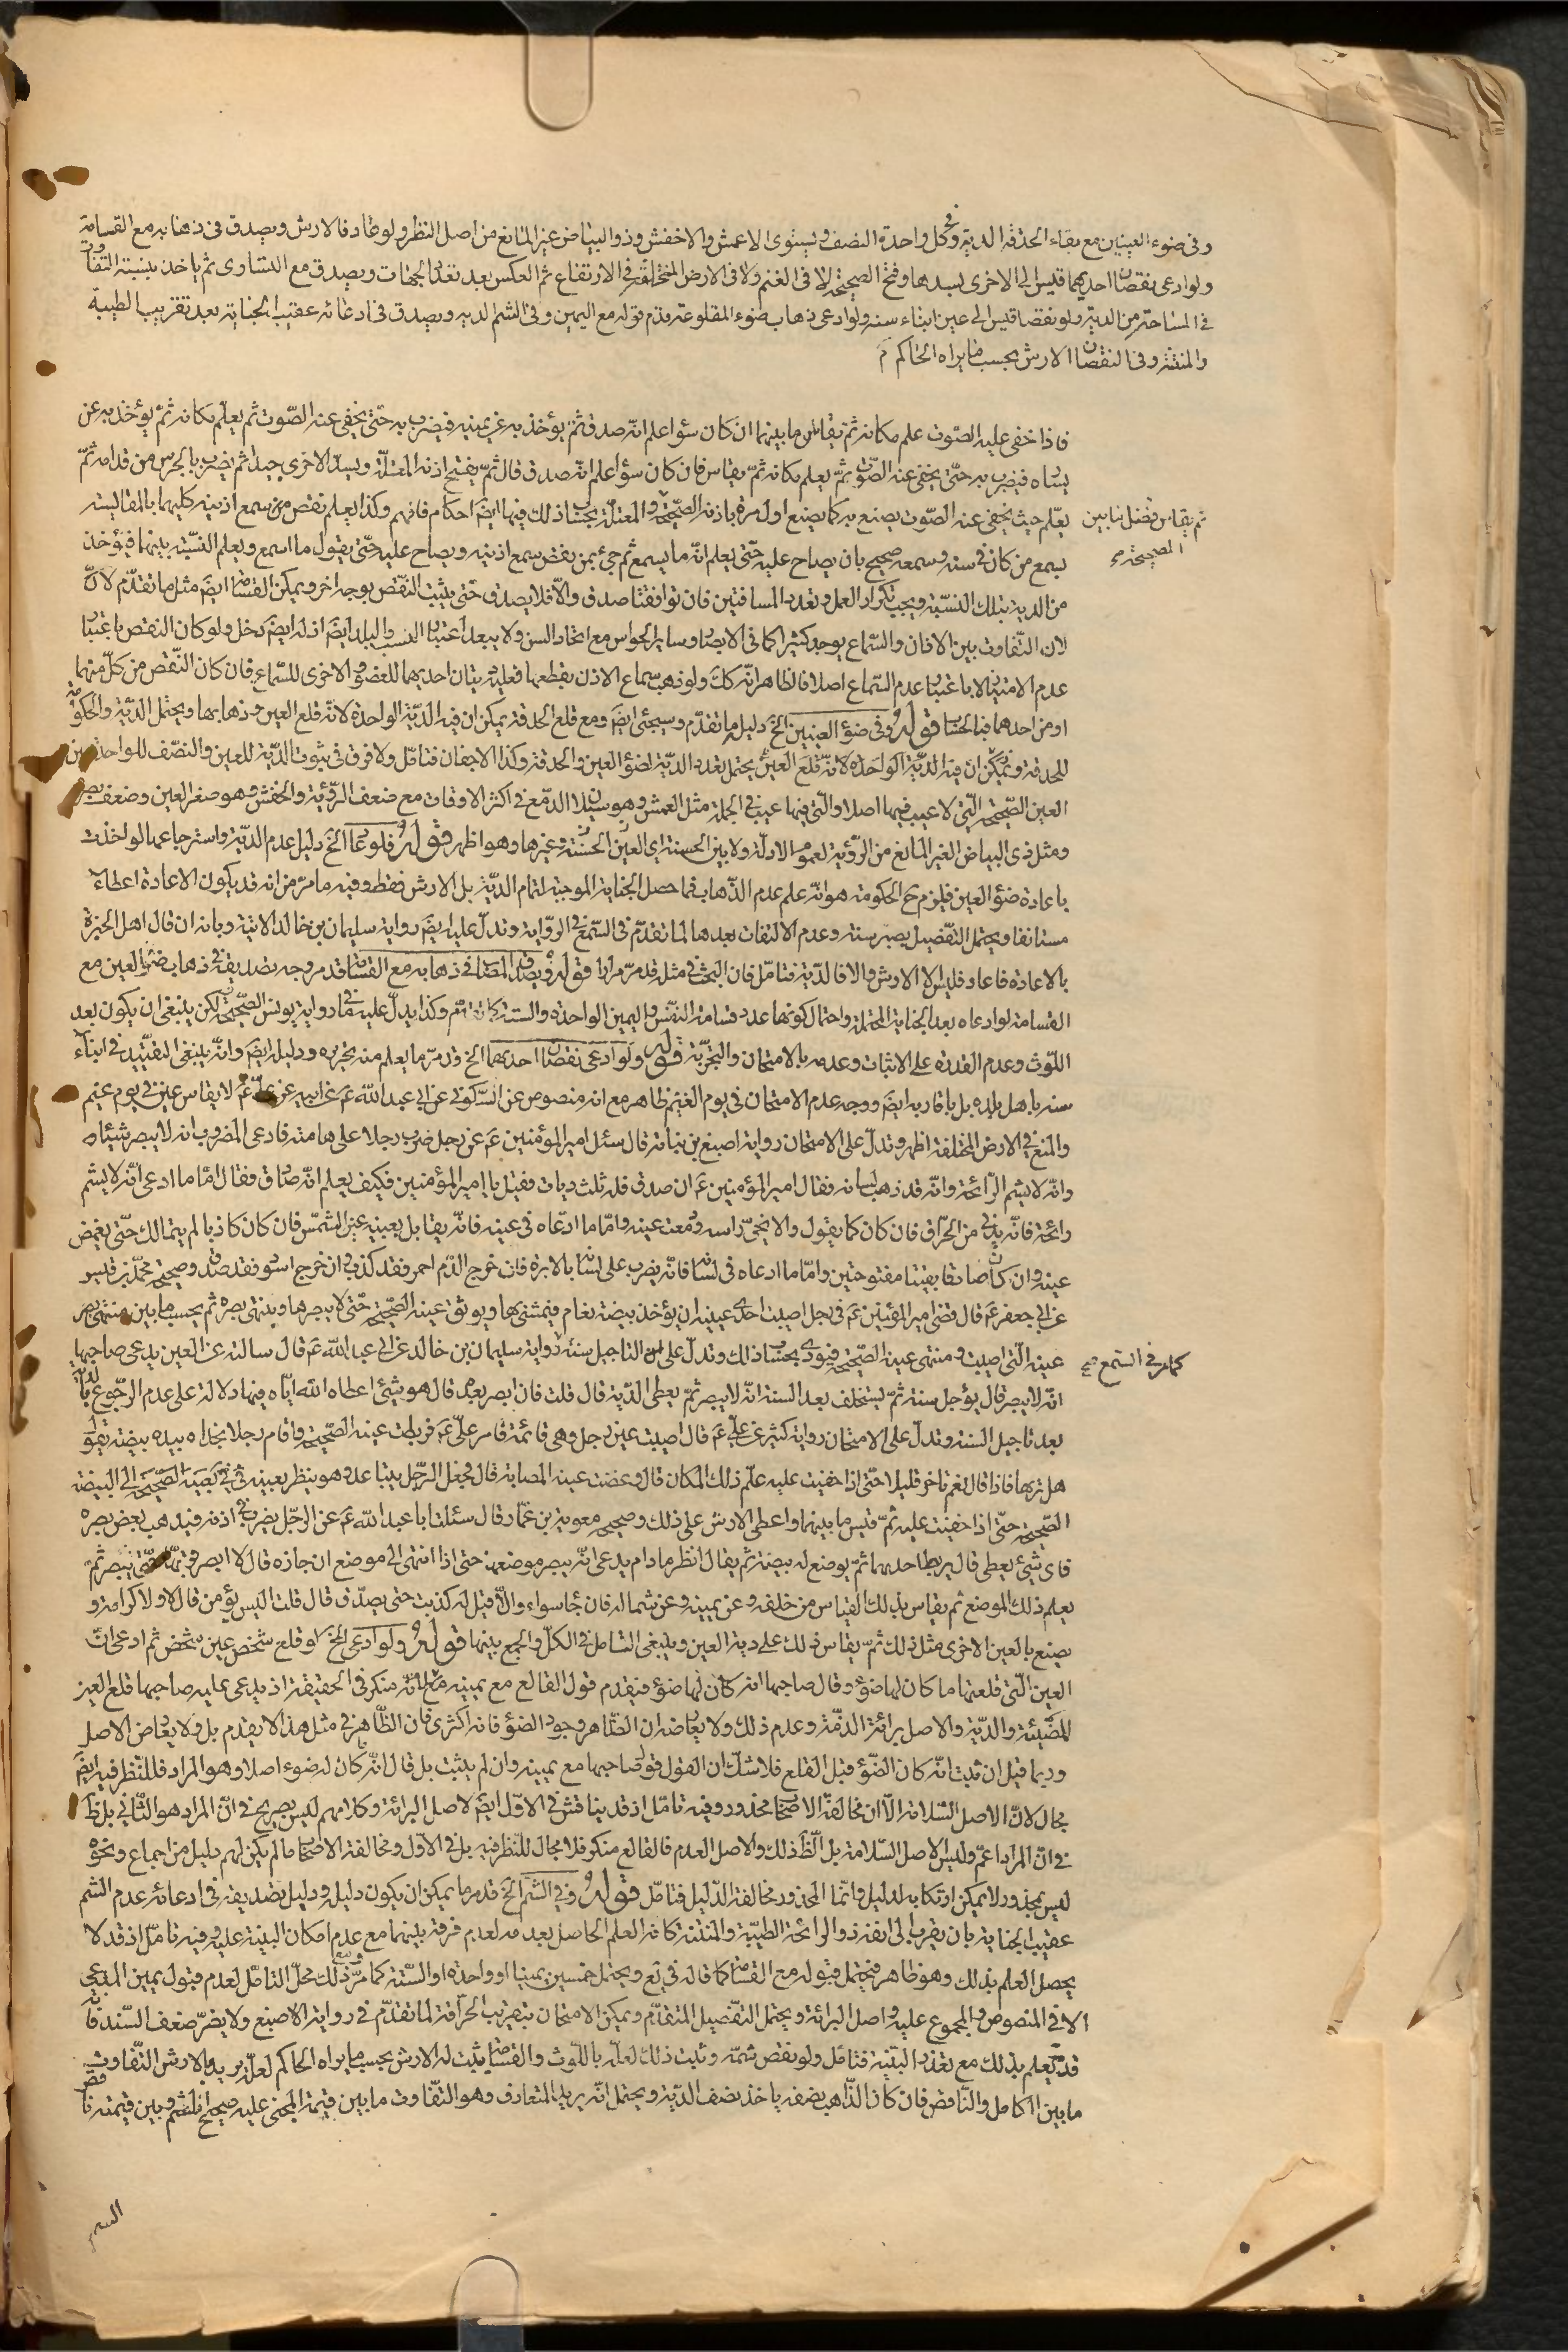 وفى ضوء العينين مع بقاء الحدقة الدية وفى كل واحدة النصف ويستوى الاعمش والاخفش وذو البياض غير المانع من اصل النظر ولو عاد فالارش ويصدق فى ذهابه مع القسامة
ولو ادعى نقصان احديهما قيس الى الاخرى بسدها وفتح الصحيحة لا فى الغيم ولا فى الارض المختلفة فى الارتفاع ثم العكس بعد تعدد الجهات ويصدق مع التساوى ثم ياخذ بنسبة التفاوت
فى المساحة من الدية ولو نقصا قيس الى عين ابناء سنه ولو ادعى ذهاب ضوء المقلوعة قدم قوله مع اليمين وفى الشم الدية ويصدق فى ادعائه عقيب الجناية بعد تقريب الطيبة
والمنتنة وفى النقصان الارش بحسب ما يراه الحاكم
فاذا خفى عليه الصّوت علم مكانه ثم يقاس ما بينهما ان كان سؤا علم انّه صدق ثمّ يؤخذ به عن يمينه فيضرب به حتّى يخفى عنه الصّوت ثم يعلّم مكانه ثمّ يؤخذ به عن
يساره فيضرب به حتّى يخفى عنه الصّوت ثمّ يعلم مكانه ثمّ يقاس فان كان سؤا علم انّه صدق قال ثمّ يفتح اذنه المعتلّة ويسدّ الاخرى جيدا ثم يضرب بالجرس من قدامه ثمّ
يعلّم حيث يخفى عنه الصّوت يصنع به كما يصنع اول مرة باذنه الصّحيحة والمعتلّة بحساب ذلك فيها ايضَ احكام فافهم وكذا يعلم نقص من سمع اذنيه كليهما بالمقايسة
ثم يقاس فضل ما بين
الصحيحة صح
بسمع من كان فى سنه وسمعه صحيح بان يصاح عليه حتّى يعلم انّه ما يسمع ثم جئ بمن نقص سمع اذنيه ويصاح عليه حتّى يقول ما اسمع ويعلم النسبّة بينهما فيؤخذ
من الدية بتلك النسبّة ويجب تكرار العمل وتعدد المسافتين فان توافقتا صدق والّا فلا يصدق حتّى يثبت النقص بوجه اخر ويمكن القسامة ايضَ مثل ما تقدّم لانّ
لان التّفاوت بين الاذان والسّماع يوجد كثيرا كما فى الابصار وساير الحواس مع اتحاد السن ولا يبعد اعتبار النسب والبلد ايضَ اذ له ايضَ دخل ولو كان النقص باعتبار
عدم الامتياز لا باعتبار عدم السّماع اصلا فالظاهر انّه كك ولو ذهب سماع الاذن بقطعها فعليه ديتان احديهما للعضو والاخرى للسّماع فان كان النّقص من كلّ منهما
او من احدهما فبالحساب قوله وفى ضؤ العينين الخ دليله ما تقدّم وسيجئ ايضَ ومع قلع الحدقة يمكن ان فيه الديّة الواحدة لانّه قلع العين وذهابها ويحتمل الديّة والحكومة
للحدقة ويمكن ان فيه الديّة الواحدة لانّه قلع العين يحتمل تعدد الديّة لضؤ العين والحدقة وكذا الاجفان فتامّل ولا فرق فى ثبوت الديّة للعين والنصّف للواحدة من
العين الصّحيحة التّى لا عيب فيها اصلا والّتى فيها عيب فى الجملة مثل العمش وهو سيلان الدمّع فى اكثر الاوقات مع ضعف الرّؤية والخفش وهو صغر العين وضعف بصر
ومثل ذى البياض الغير المانع من الرّؤية لعموم الادلّة ولا بين الحسنة اى العين الحسنّة وغيرها وهو اظهر قوله فلو عاد الخ دليل عدم الديّة واسترجاعها لو اخذت
باعادة ضؤ العين فيلزم ح الحكومة هو انّه علم عدم الذّهاب فما حصل الجناية الموجبة لتمام الديّة بل الارش فقط وفيه ما مرّ من انه قد يكون الاعادة اعطاء
مستانفا ويحتمل التفّصيل بصبر سنة وعدم الالتفات بعدها لما تقدّم فى السّمع فى الروّاية وتدلّ عليه ايضَ رواية سليمان بن خالد الاتية وبانه ان قال اهل الخبرة
بالاعادة فاعاد فليس الا الارش والا فالدّية فتامّل فان البحث فى مثله قد مرّ مرارا قوله ويصدق المصاب فى ذهابه مع القسامة قد مر وجه تصديقه فى ذهاب ضؤ العين مع
القسامة لو ادعاه بعد الجناية المحتملة واحتمال كونها عدد قسامة النفّس واليمين الواحدة والستة كما تقدّم وكذا يدلّ عليه فى ما رواية يونس الصّحيحة لكن ينبغى ان يكون بعد
اللّوث وعدم القدرة على الاثبات وعدمه بالامتحان والتجربّة قوله ولو ادعى نقصان احديهما الخ قد مرّ ما يعلم منه تحريره ودليله ايضَ وانّه ينبغى التقيّيد فى ابناء
سنه باهل بلده بل باقاربه ايضَ ووجه عدم الامتحان فى يوم الغيم ظاهر مع انه منصوص عن السّكونى عن ابى عبد اللّه عَ عن ابيه عن علىّ عَ لا يقاس عين فى يوم غيم
والمنع فى الارض المختلفة اظهر وتدلّ على الامتحان رواية اصبغ بن نباتة قال سئل امير المؤمنين عَ عن رجل ضرب رجلا على هامته فادعى المضروب انه لا يبصر شيئا
وانّه لا يشم الرّائحة وانّه قد ذهب لسانه فقال امير المؤمنين عَ ان صدق فله ثلث ديات فقيل يا امير المؤمنين فكيف يعلم انّه صادق فقال امّا ما ادعى انّه لا يشم
رائحة فانّه يدنى من الحرّاق فان كان كما يقول والا نحىّ راسه ودمعت عينه وامّا ما ادّعاه فى عينه فانّه يقابل بعينيه عين الشّمس فان كان كاذبا لم يتمالك حتّى يغمض
عينه وان كان صادقا بقيتا مفتوحتين وامّا ما ادعاه فى لسانه فانّه يضرب على لسانه بالابرة فان خرج الدّم احمر فقد كذب وان خرج اسود فقد صدق وصحيحة محمّد بن قيس
عن ابى جعفر عَ قال قضى امير المؤمنين عَ فى رجل اصيبت احدى عينيه ان يؤخذ بيضة نعام فيمشى بها ويوثق عينه الصّحيحة حتّى لا يبصرها وينتهى بصره ثم يحسب ما بين منتهى بصر
عينه الّتى اصيبت ومنتهى عينه الصّحيحة فيودى بحساب ذلك وتدلّ على التاجيل سنة رواية سليمان بن خالد عن ابى عبد اللّه عَ قال سالته عن العين يدعى صاحبها
كما مر فى السّمع صح
انّه لا يبصر قال يؤجل سنة ثمّ يستحلف بعد السنة انّه لا يبصر ثمّ يعطى الدّية قال قلت فان ابصر بعد قال هو شئ اعطاه اللّه ايّاه فيها دلالة على عدم الرّجوع بالدية
بعد تاجيل السّنة وتدلّ على الامتحان رواية كثير عن علىّ عَ قال اصيبت عين رجل وهى قائمة فامر علىّ عَ فربطت عينه الصّحيحة واقام رجلا بحذاه بيده بيضة يقول
هل تراها فاذا قال نعم تاخر قليلا حتّى اذا خفيت عليه علّم ذلك المكان قال وعصبت عينه المصابة قال فجعل الرّجل يتباعد وهو ينظر بعينه الصّحيحة الى البيضة
الصّحيحة حتّى اذا خفيت عليه ثمّ قيس ما بينهما واعطى الارش على ذلك وصحيحة معوية بن عمّار قال سئلت ابا عبد اللّه عَ عن الرّجل يضرب فى اذنه فيذهب بعض بصره
فاى شئ يعطى قال يربط احديهما ثمّ يوضع له بيضة ثم يقال انظر ما دام يدعى انّه يبصر موضعها حتّى اذا انتهى الى موضع ان جازه قال لا ابصر قربها حتّى يبصر ثمّ
يعلم ذلك الموضع ثم يقاس بذلك القياس من خلفه وعن يمينه وعن شماله فان جأ سواء والّا قيل له كذبت حتّى يصدّق قال قلت اليس يؤمن قال لا ولا كرامة و
يصنع بالعين الاخرى مثل ذلك ثمّ يقاس ذلك على دية العين وينبغى التامل فى الكلّ والجمع بينها قوله ولو ادعى الخ لو قلع شخص عين شخص ثم ادعى انّ
العين الّتى قلعتها ما كان لها ضؤ وقال صاحبها انه كان لها ضؤ فيقدم قول القالع مع يمينه مع انّه منكر فى الحقيقة اذ يدعى عليه صاحبها قلع العين
المضّيئة والدّية والاصل برائة الذمّة وعدم ذلك ولا يعارضه ان الظّاهر وجود الضؤ فانه اكثرى فان الظّاهر فى مثل هذا لا يقدم بل ولا يعارض الاصل
وربما قيل ان ثبت انّه كان الضّؤ قبل القلع فلا شكّ ان القول قول صاحبها مع يمينه وان لم يثبت بل قال انّه ما كان له ضوء اصلا وهو المراد فللنّظر فيه ايضَ
مجال لانّ الاصل السّلامة الّا ان مخالفة الاصحاب محذور وفيه تامّل اذ قد يناقش فى الاوّل ايضَ لاصل البرائة وكلامهم ليس بصريح فى انّ المراد هو الثّانى بل ظَ
فى انّ المراد اعمّ وليس الاصل السّلامة بل الظَ ذلك والاصل العدم فالقالع منكر فلا مجال للنّظر فيه بل فى الاوّل ومخالفة الاصحاب ما لم يكن لهم دليل من اجماع ونحوه
ليس بمحذور لا يمكن ارتكابه لدليل وانّما المحذور مخالفة الدّليل فتامّل قوله وفى الشمّ الخ قد مر ما يمكن ان يكون دليله ودليل تصديقه فى ادعائه عدم الشم
عقيب الجناية بان يقرب الى انفه ذو الرائحة الطيبّة والمنتنة كانه العلم الحاصل بعدمه لعدم فرقه بينهما مع عدم امكان البينة عليه وفيه تامّل اذ قد لا
يحصل العلم بذلك وهو ظاهر فيحتمل قبوله مع القسامة كما قاله فى يَع ويحتمل خمسين يمينا او واحدة او السّتة كما مرّ فى سمع وذلك محلّ التامّل لعدم قبول يمين المدّعى
الا فى المنصوص والمجموع عليه واصل البرائة ويحتمل التفّصيل المتقدّم ويمكن الامتحان بتقريب الحرّاقة لما تقدّم فى رواية الاصبغ ولا يضرّ ضعف السّند فانّه
قد يعلم بذلك مع تعذر البيّنة فتامّل ولو نقص شمّه وثبت ذلك لعلّه باللّوث والقسامة يثبت له الارش بحسب ما يراه الحاكم لعلّه يريد بالارش التّفاوت
ما بين الكامل والنّاقص فان كان الذّاهب نصفه ياخذ نصف الديّة ويحتمل انّه يريد المتعارف وهو التّفاوت ما بين قيمة المجنى عليه صحيح الشم وبين قيمته ناقص
الشم